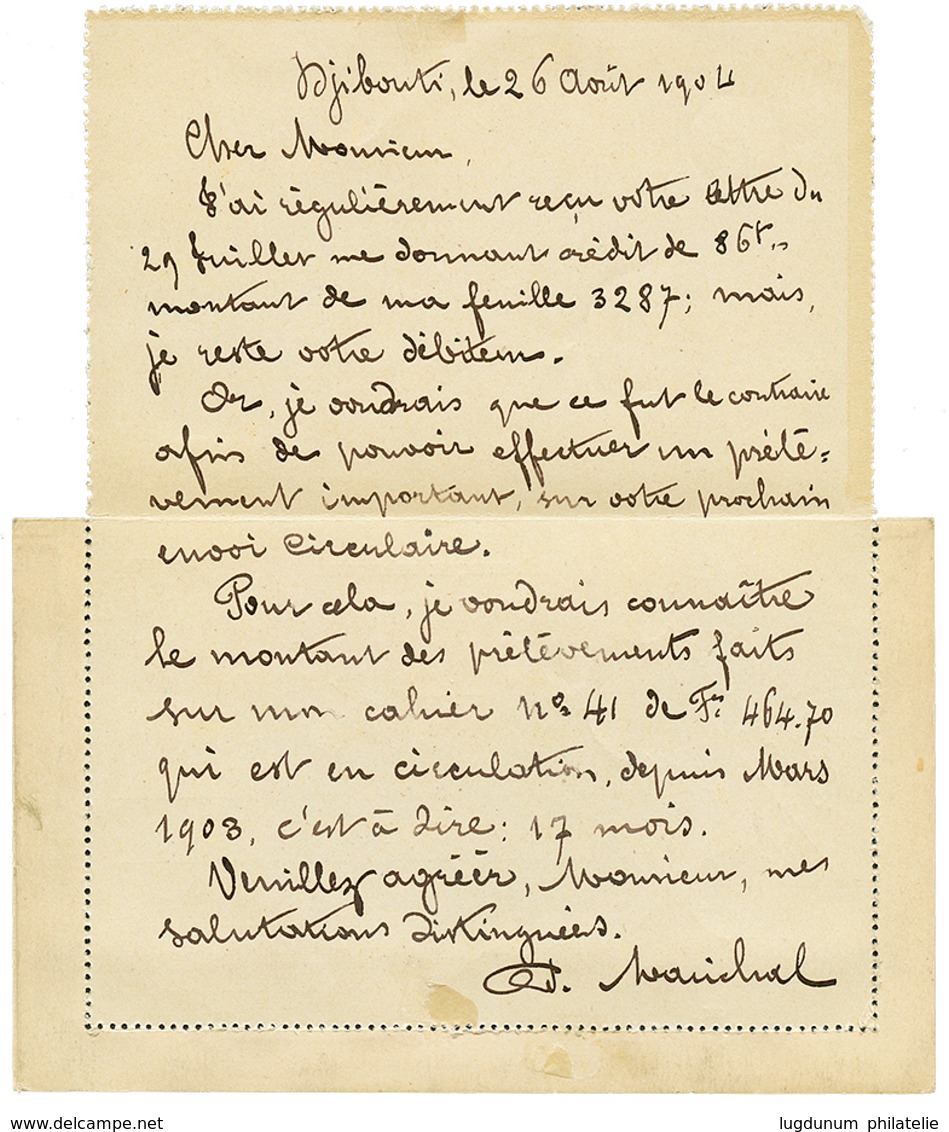 Djibouti, le 26 Août 1904
Cher Monsieur,
J'ai régulièrement reçu votre lettre du
29 Juillet me donnant crédit de 86f,,
montant de ma feuille 3287; mais,
je reste votre débiteur.
Or, je voudrais que ce fut le contraire
afin de pouvoir effectuer un prélè=
vement important, sur votre prochain
envoi circulaire.
Pour cela, je voudrais connaître
le montant des prélèvements faits
sur mon cahier No 41 de Frs 464.70
qui est en circulation, depuis Mars
1903, c'est à dire: 17 mois.
Veuillez agréer, Monsieur, mes
salutations distinguées.
lugdunum philatelie